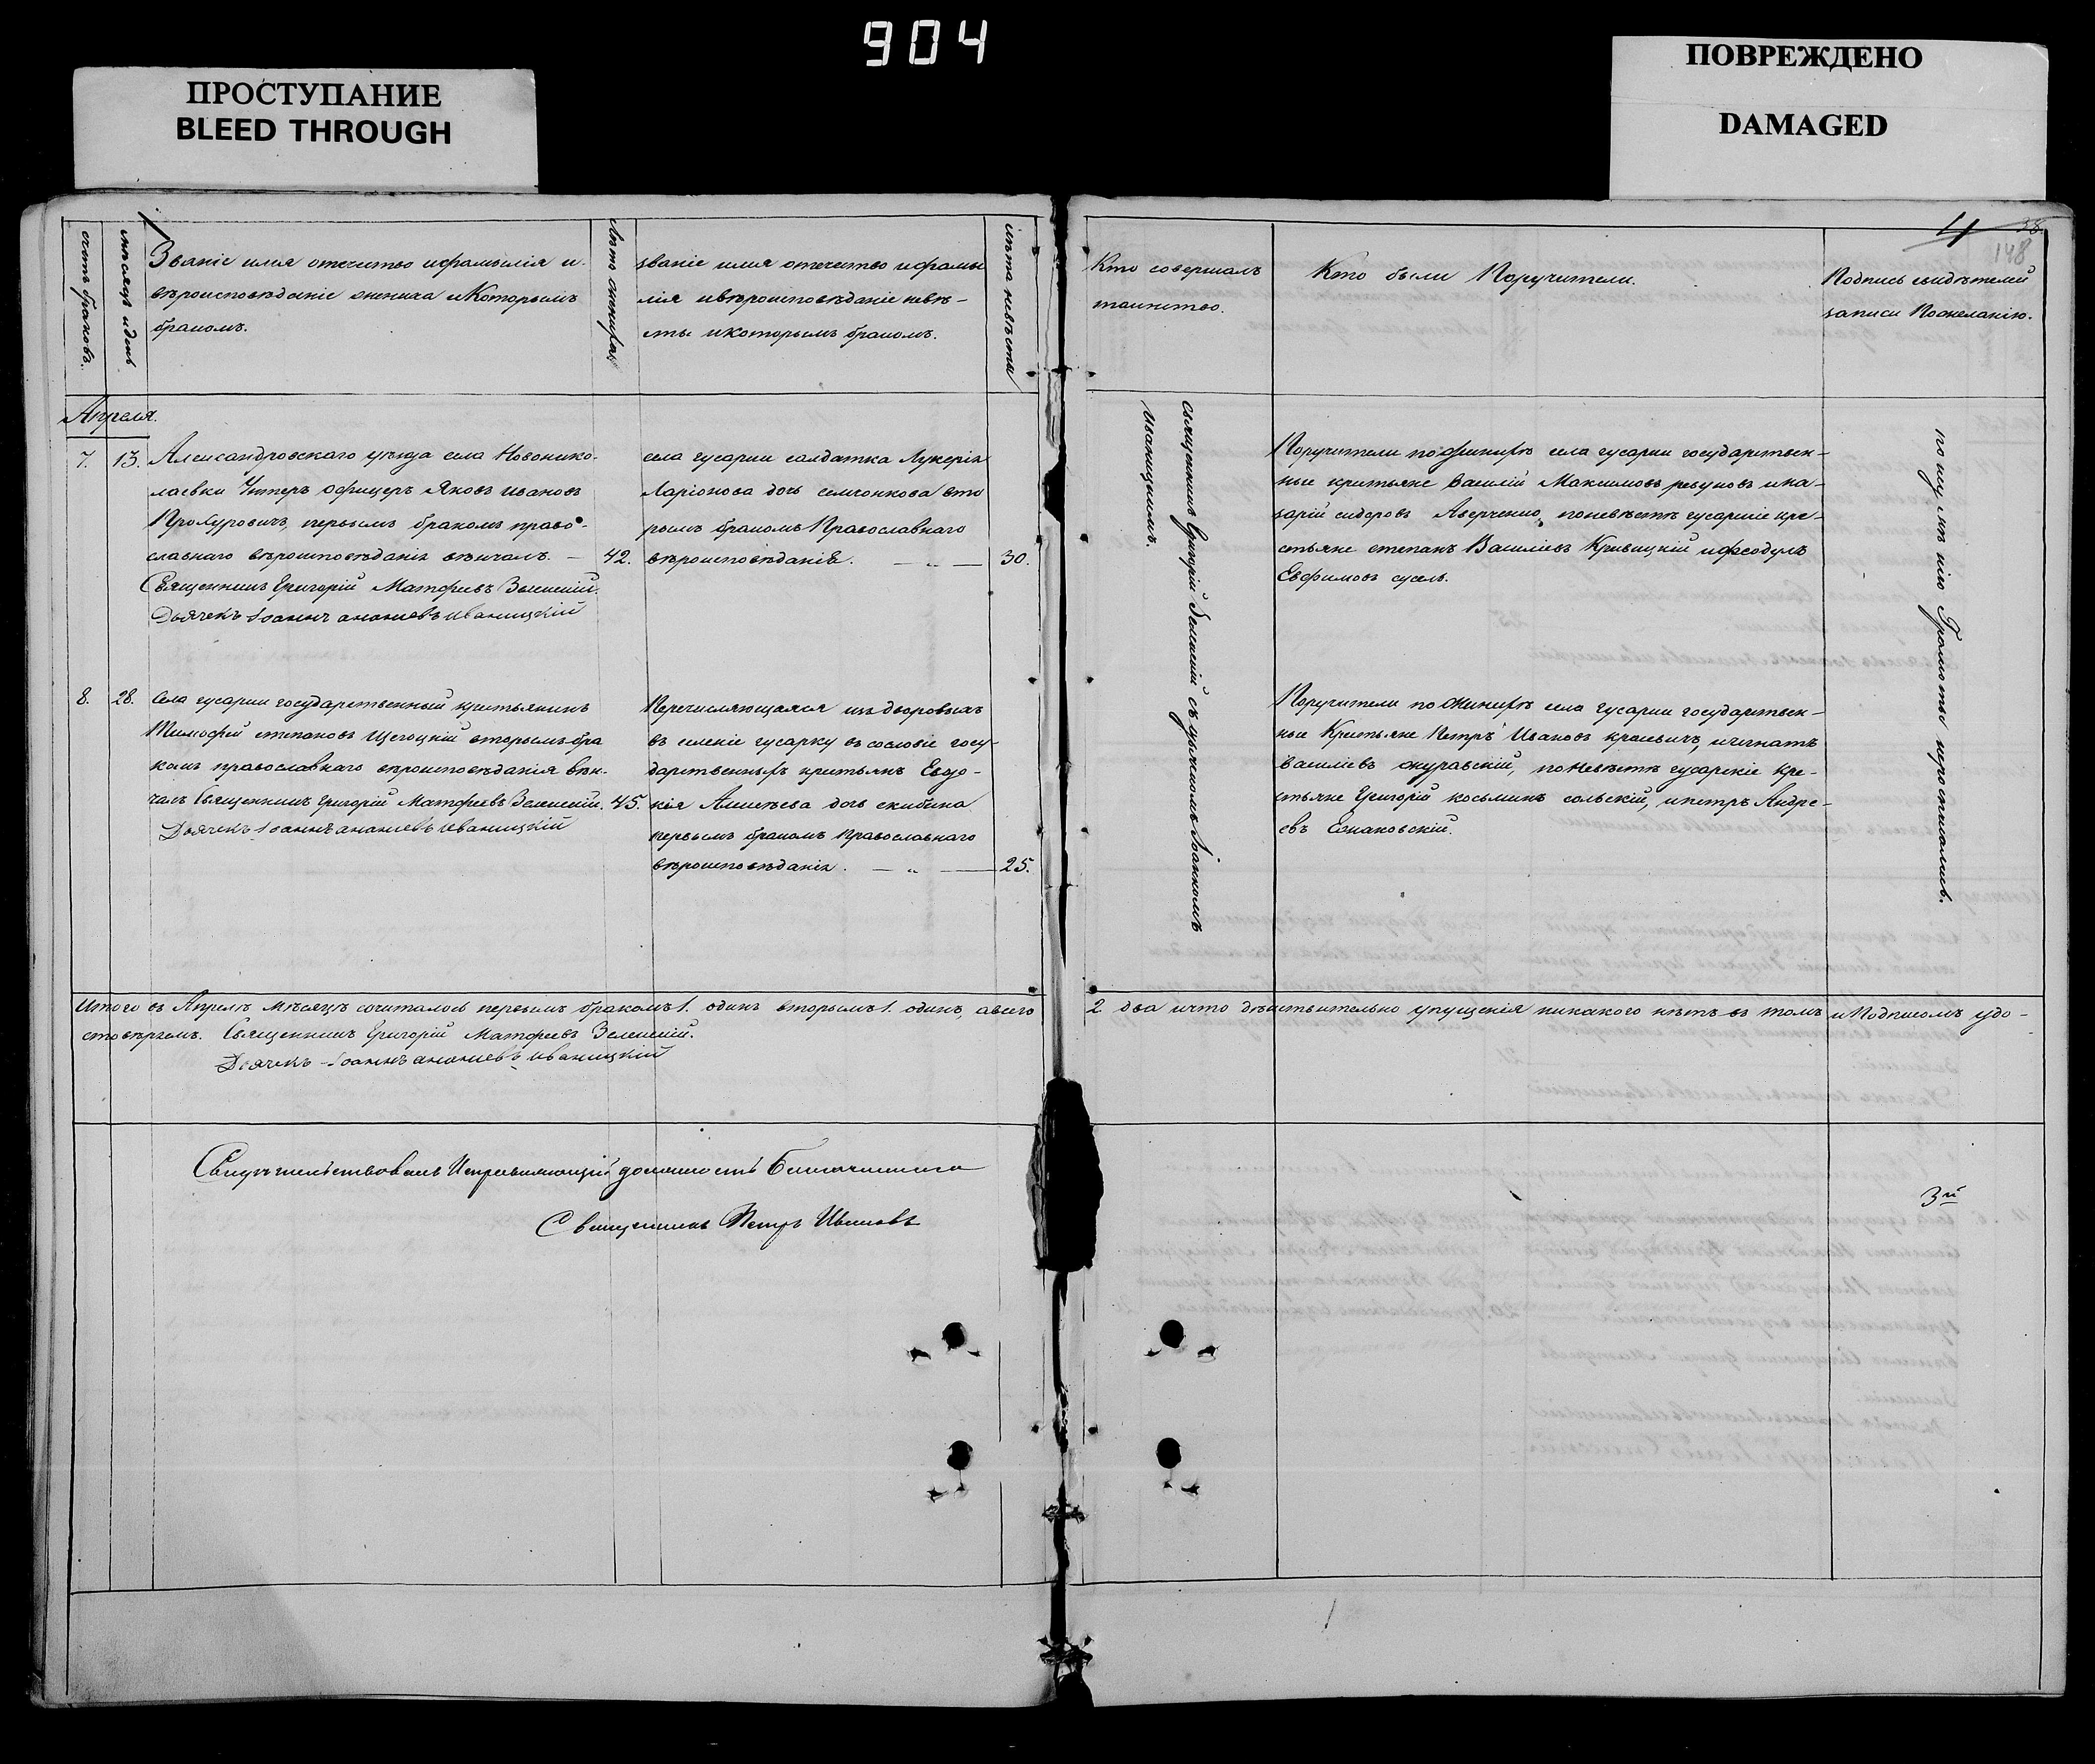 904
ПРОСТУПАНИЕ
BLEED THROUGH
ПОВРЕЖДЕНО
DAMAGED
4
38.
148
счетъ браковъ.
мѣсяцъ и день
Званіе имя отечество ифамилія и
вѣроисповѣданіе жениха и Которымъ
бракомъ.
лѣта жениха
званіе имя отечество ифами
лія ивѣроисповѣданіе невѣ-
сты икоторымъ бракомъ.
лѣта невѣсты
Кто совершалъ
таинство.
Кто были Поручители.
Подпись свидѣтелей
записи Пожеланію.
Апреля.
7. 13. Александровскаго уѣзда села Новонико-
лаевки Унтеръ офицеръ Яковъ Ивановъ
Прохуровичъ, первымъ бракомъ право-
славнаго вѣроисповѣданія вѣнчалъ. — 42.
Священникъ Григорій Матфеевъ Зеленскій.
Дьячекъ Іоаннъ ананиевъ иваницкій
села гусарки салдатка Лукерія
Ларіонова дочь семионкова вто
рымъ бракомъ Православнаго
вѣроисповѣданія. — „ — 30.
священникъ Григорій Зеленскій съ дьячкомъ Іоанномъ
Иваницкимъ.
Поручители пожениху села гусарки государствен-
ные крестьяне василій Максимовъ резуновъ ина-
зарій сидоровъ Аверченко, поневѣстѣ гусарскіе кре-
стьяне степанъ Василіевъ Кривицкій ифеодулъ
Евфимовъ сусль.
по неумѣнію Грамоты неросписались.
8. 28. Села гусарки государственный крестьянинъ
Тимофей степановъ Щегоцкій вторымъ бра
комъ православнаго вѣроисповѣданія вѣн-
чалъ Священникъ Григорій Матфеевъ Зеленскій. 45.
Дьячекъ Іоаннъ ананиевъ иваницкій
Перечисляющаяся издворовыхъ
въ селеніе гусарку въ сословіе госу-
дарственныхъ крестьянъ Евдо-
кія Алексѣева дочь скибина
первымъ бракомъ Православнаго
вѣроисповѣданія. — „ — 25.
Поручители пожениху села гусарки государствен-
ные Крестьяне Петръ Ивановъ красевичъ, игнатъ
василіевъ журавскій, поневѣстѣ гусарскіе кре-
стьяне Григорій косьминъ сольскій, ипетръ Андре-
евъ Езнаковскій.
Итого въ Апрелѣ мѣсяцѣ сочиталось первымъ бракомъ 1. одинъ вторымъ 1. одинъ, авсего 2 два ичто дѣйствительно упущенія никакого нѣтъ въ томъ иПодписомъ удо-
стовѣряемъ. Священникъ Григорій Матфеевъ Зеленскій.
Дьячекъ Іоаннъ ананиевъ иваницкій
Свидѣтельствовалъ Исправляющій должность Благочиннаго
Священникъ Петръ Ивановъ
3й